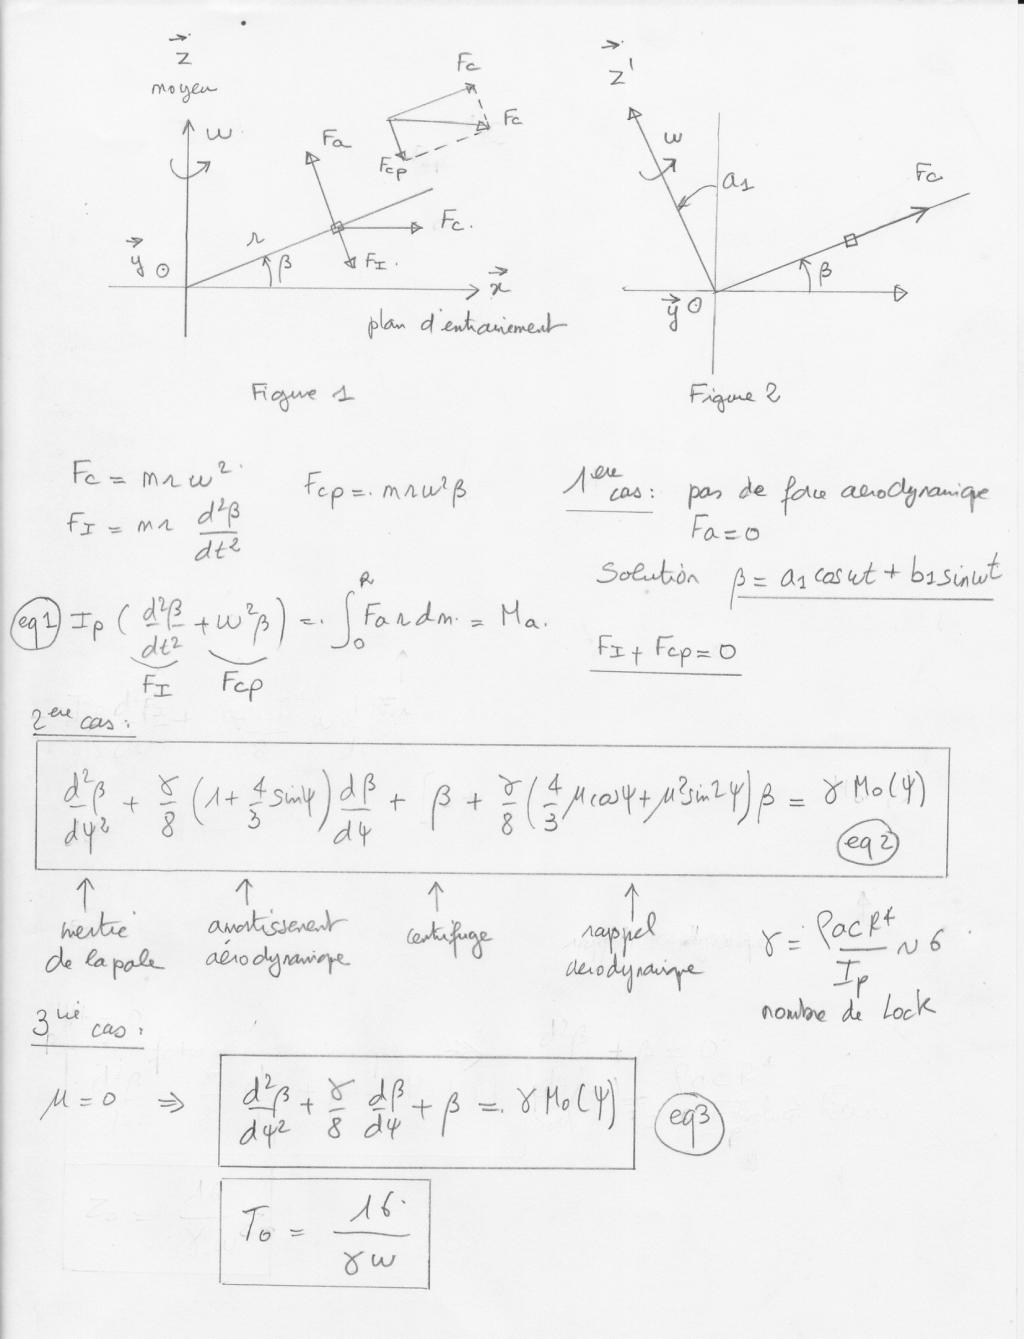 z⃗
moyen
ω
Fa
Fc
Fc
Fcp
r
Fc.
y⃗
β
FI.
x⃗
plan d'entrainement
Figure 1
z⃗'
ω
a1
Fc
y⃗
β
Figure 2
Fc = m r ω²
Fcp = m r ω²β
FI = m r d²β/dt²
1ere cas : pas de force aerodynamique
Fa = 0
Solution β = a1 cosωt + b1 sinωt
FI + Fcp = 0
eq1 Ip ( d²β/dt² + ω²β ) = ∫₀ᴿ Fa r dm = Ma.
FI Fcp
2ere cas :
d²β/dψ² + γ/8 (1 + 4/3 sinψ) dβ/dψ + β + γ/8 (4/3 μ cosψ + μ² sin2ψ) β = γ Mo(ψ)
eq2
inertie de la pale
amortissement aérodynamique
centrifuge
rappel aerodynamique
γ = ρacR⁴/Ip ~ 6
nombre de Lock
3 cas :
μ = 0 ⇒ d²β/dψ² + γ/8 dβ/dψ + β = γ Mo(ψ) eq3
To = 16/γω